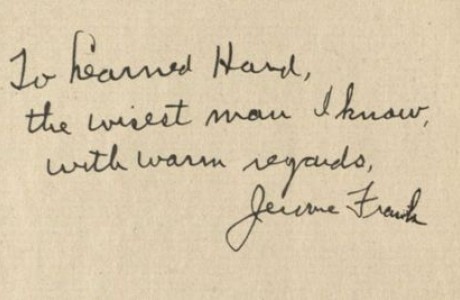 To Learned Hand,
the wisest man I know,
with warm regards,
Jerome Frank